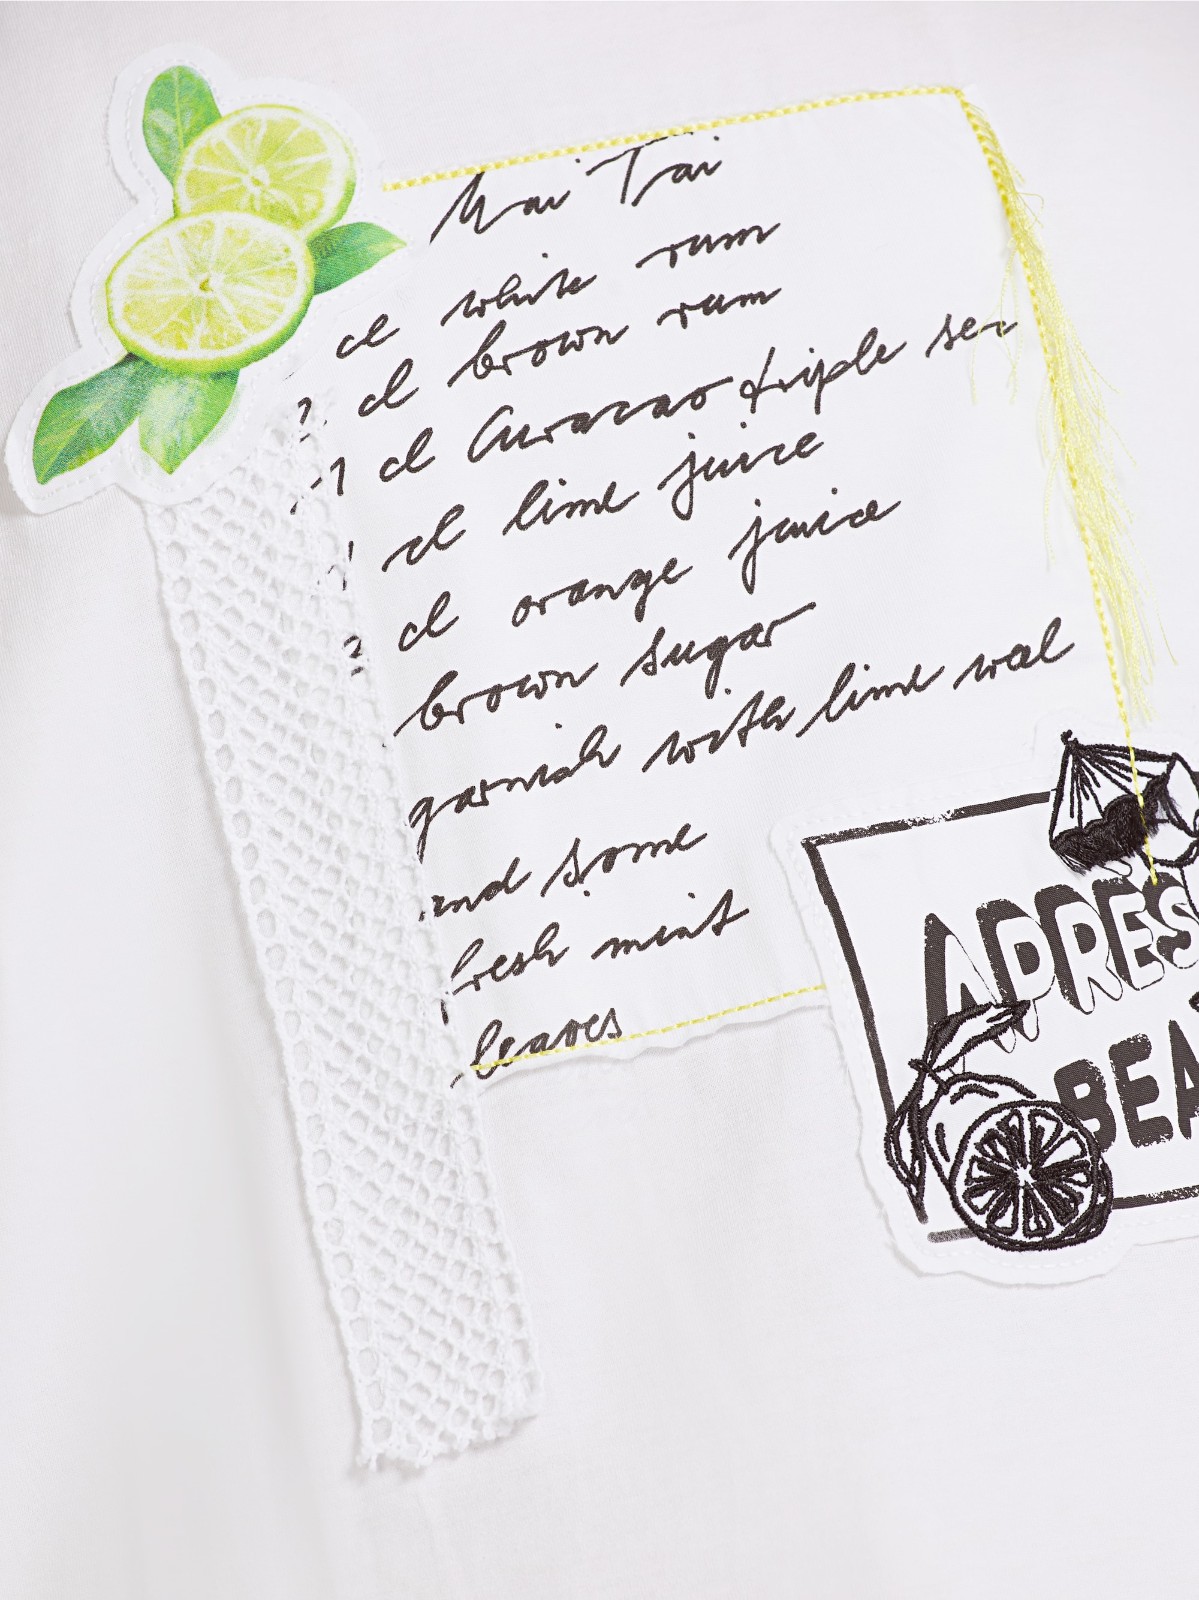 Mai Tai
cl white rum
cl brown rum
1 cl Curacao triple sec
cl lime juice
cl orange juice
brown sugar
garnish with lime
and some
fresh mint
leaves
APRES
BEA